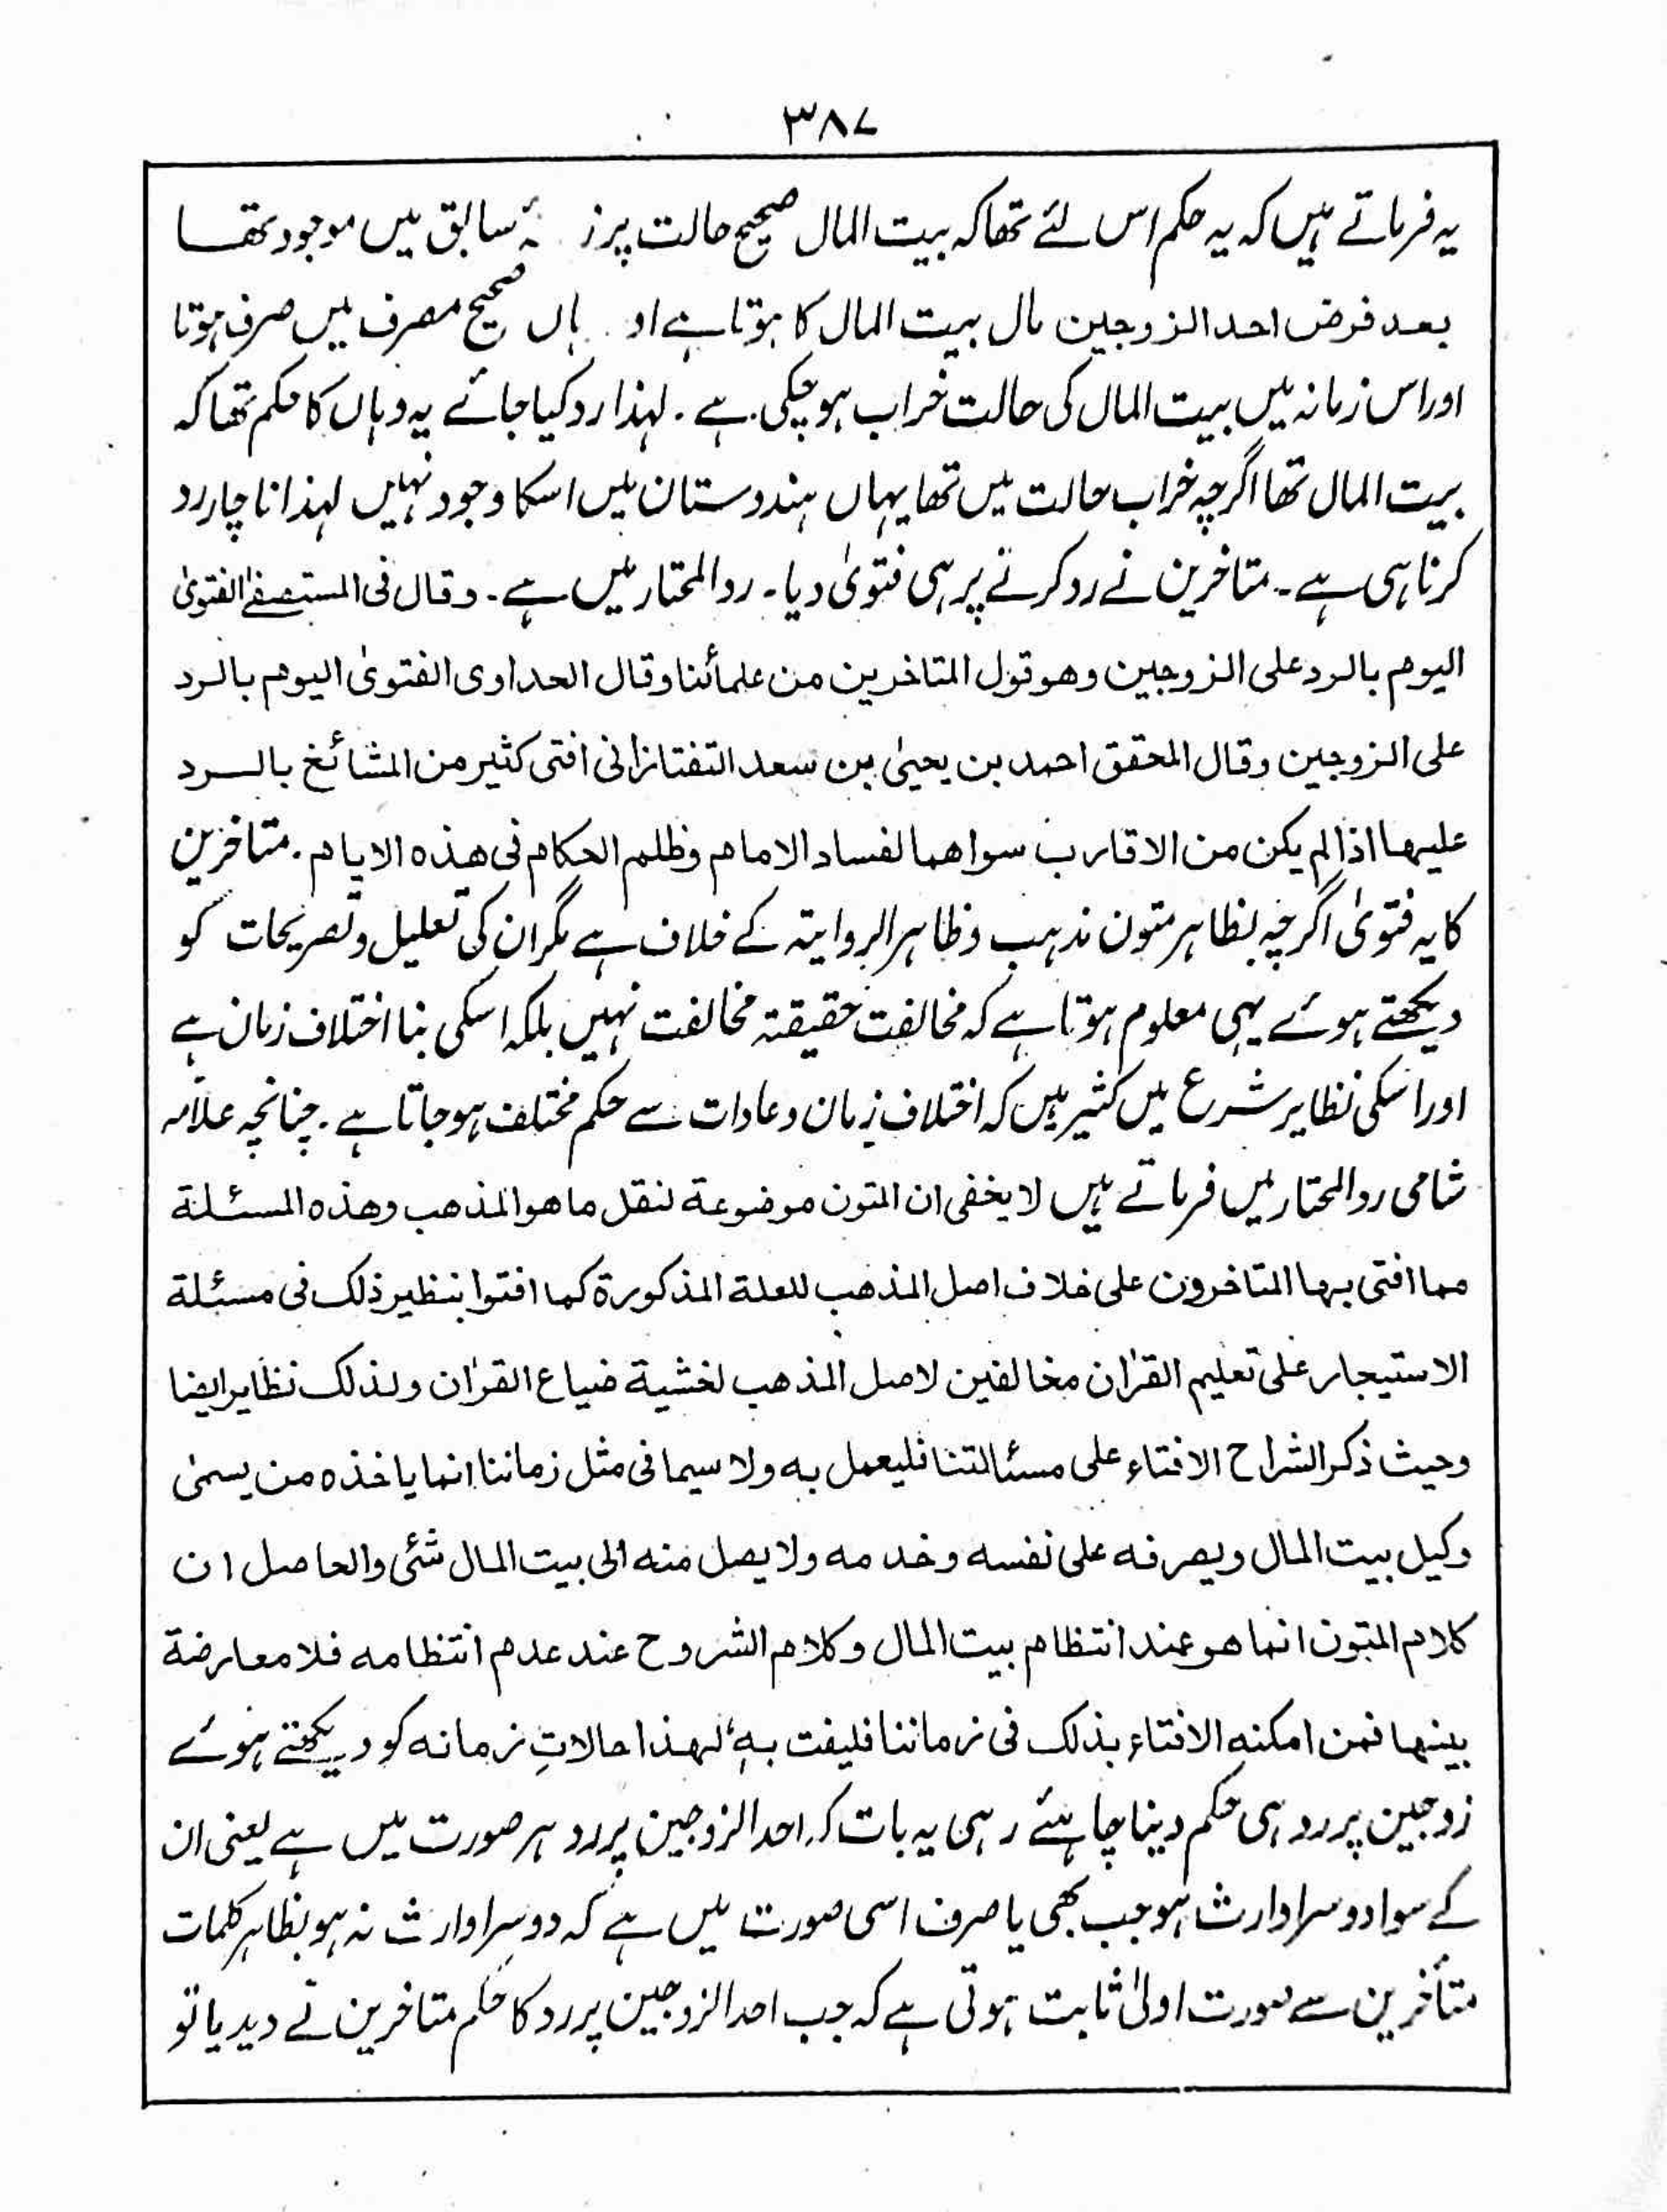 ۳۸۷
یہ فرماتے ہیں کہ یہ حکم اس لئے تھا کہ بیت المال صحیح حالت پر سابق میں موجود تھا
بعد فرض احد الزوجین مال بیت المال کا ہوتا ہے ہاں صحیح مصرف میں صرف ہوتا
اور اس زمانہ میں بیت المال کی حالت خراب ہو چکی ہے ۔ لہذا رد کیا جائے یہ وہاں کا حکم تھا کہ
بیت المال تھا اگرچہ خراب حالت میں تھا یہاں ہندوستان میں اسکا وجود نہیں لہذا ناچار رد
کرنا ہی ہے ۔ متاخرین نے رد کرنے پر ہی فتویٰ دیا ۔ رد المحتار میں ہے ۔ وقال فی المستصفےٰ الفتویٰ
الیوم بالرد علی الزوجین وھو قول المتاخرین من علمائنا وقال الحدادی الفتویٰ الیوم بالرد
علی الزوجین وقال المحقق احمد بن یحییٰ بن سعد التفتازانی افتی کثیر من المشائخ بالرد
علیھا اذا لم یکن من الاقارب سواھما لفساد الامام وظلم الحکام فی ھذہ الایام ۔ متاخرین
کا یہ فتویٰ اگرچہ بظاہر متون مذہب وظاہر الروایتہ کے خلاف ہے مگر ان کی تعلیل وتصریحات کو
دیکھتے ہوئے یہی معلوم ہوتا ہے کہ مخالفت حقیقتہ مخالفت نہیں بلکہ اسکی بنا اختلاف زمان ہے
اور اسکی نظایر شرع میں کثیر ہیں کہ اختلاف زمان وعادات سے حکم مختلف ہو جاتا ہے ۔ چنانچہ علامہ
شامی رد المحتار میں فرماتے ہیں لا یخفی ان المتون موضوعة لنقل ما ھو المذھب وھذہ المسئلة
مما افتی بہا المتاخرون علی خلاف اصل المذھب للعلة المذکورة کما افتوا بنظیر ذلک فی مسئلة
الاستیجار علی تعلیم القرٰان مخالفین لاصل المذھب لخشیة ضیاع القرٰان ولذلک نظایر ایضا
وحیث ذکر الشراح الافتاء علی مسئالتنا فلیعمل بہ ولا سیما فی مثل زماننا انما یاخذہ من یسمیٰ
وکیل بیت المال ویصرفہ علی نفسہ وخدمہ ولا یصل منہ الی بیت المال شئی والحاصل ان
کلام المتون انما ھو عند انتظام بیت المال وکلام الشروح عند عدم انتظامہ فلا معارضة
بینھا فمن امکنہ الافتاء بذلک فی زماننا فلیفت بہ لہذا حالاتِ زمانہ کو دیکھتے ہوئے
زوجین پر رد ہی حکم دینا چاہئے رہی یہ بات کہ احد الزوجین پر رد ہر صورت میں ہے یعنی ان
کے سوا دوسرا وارث ہو جب بھی یا صرف اسی صورت میں ہے کہ دوسرا وارث نہ ہو بظاہر کلمات
متأخرین سے صورت اولیٰ ثابت ہوتی ہے کہ جب احد الزوجین پر رد کا حکم متاخرین نے دیدیا تو